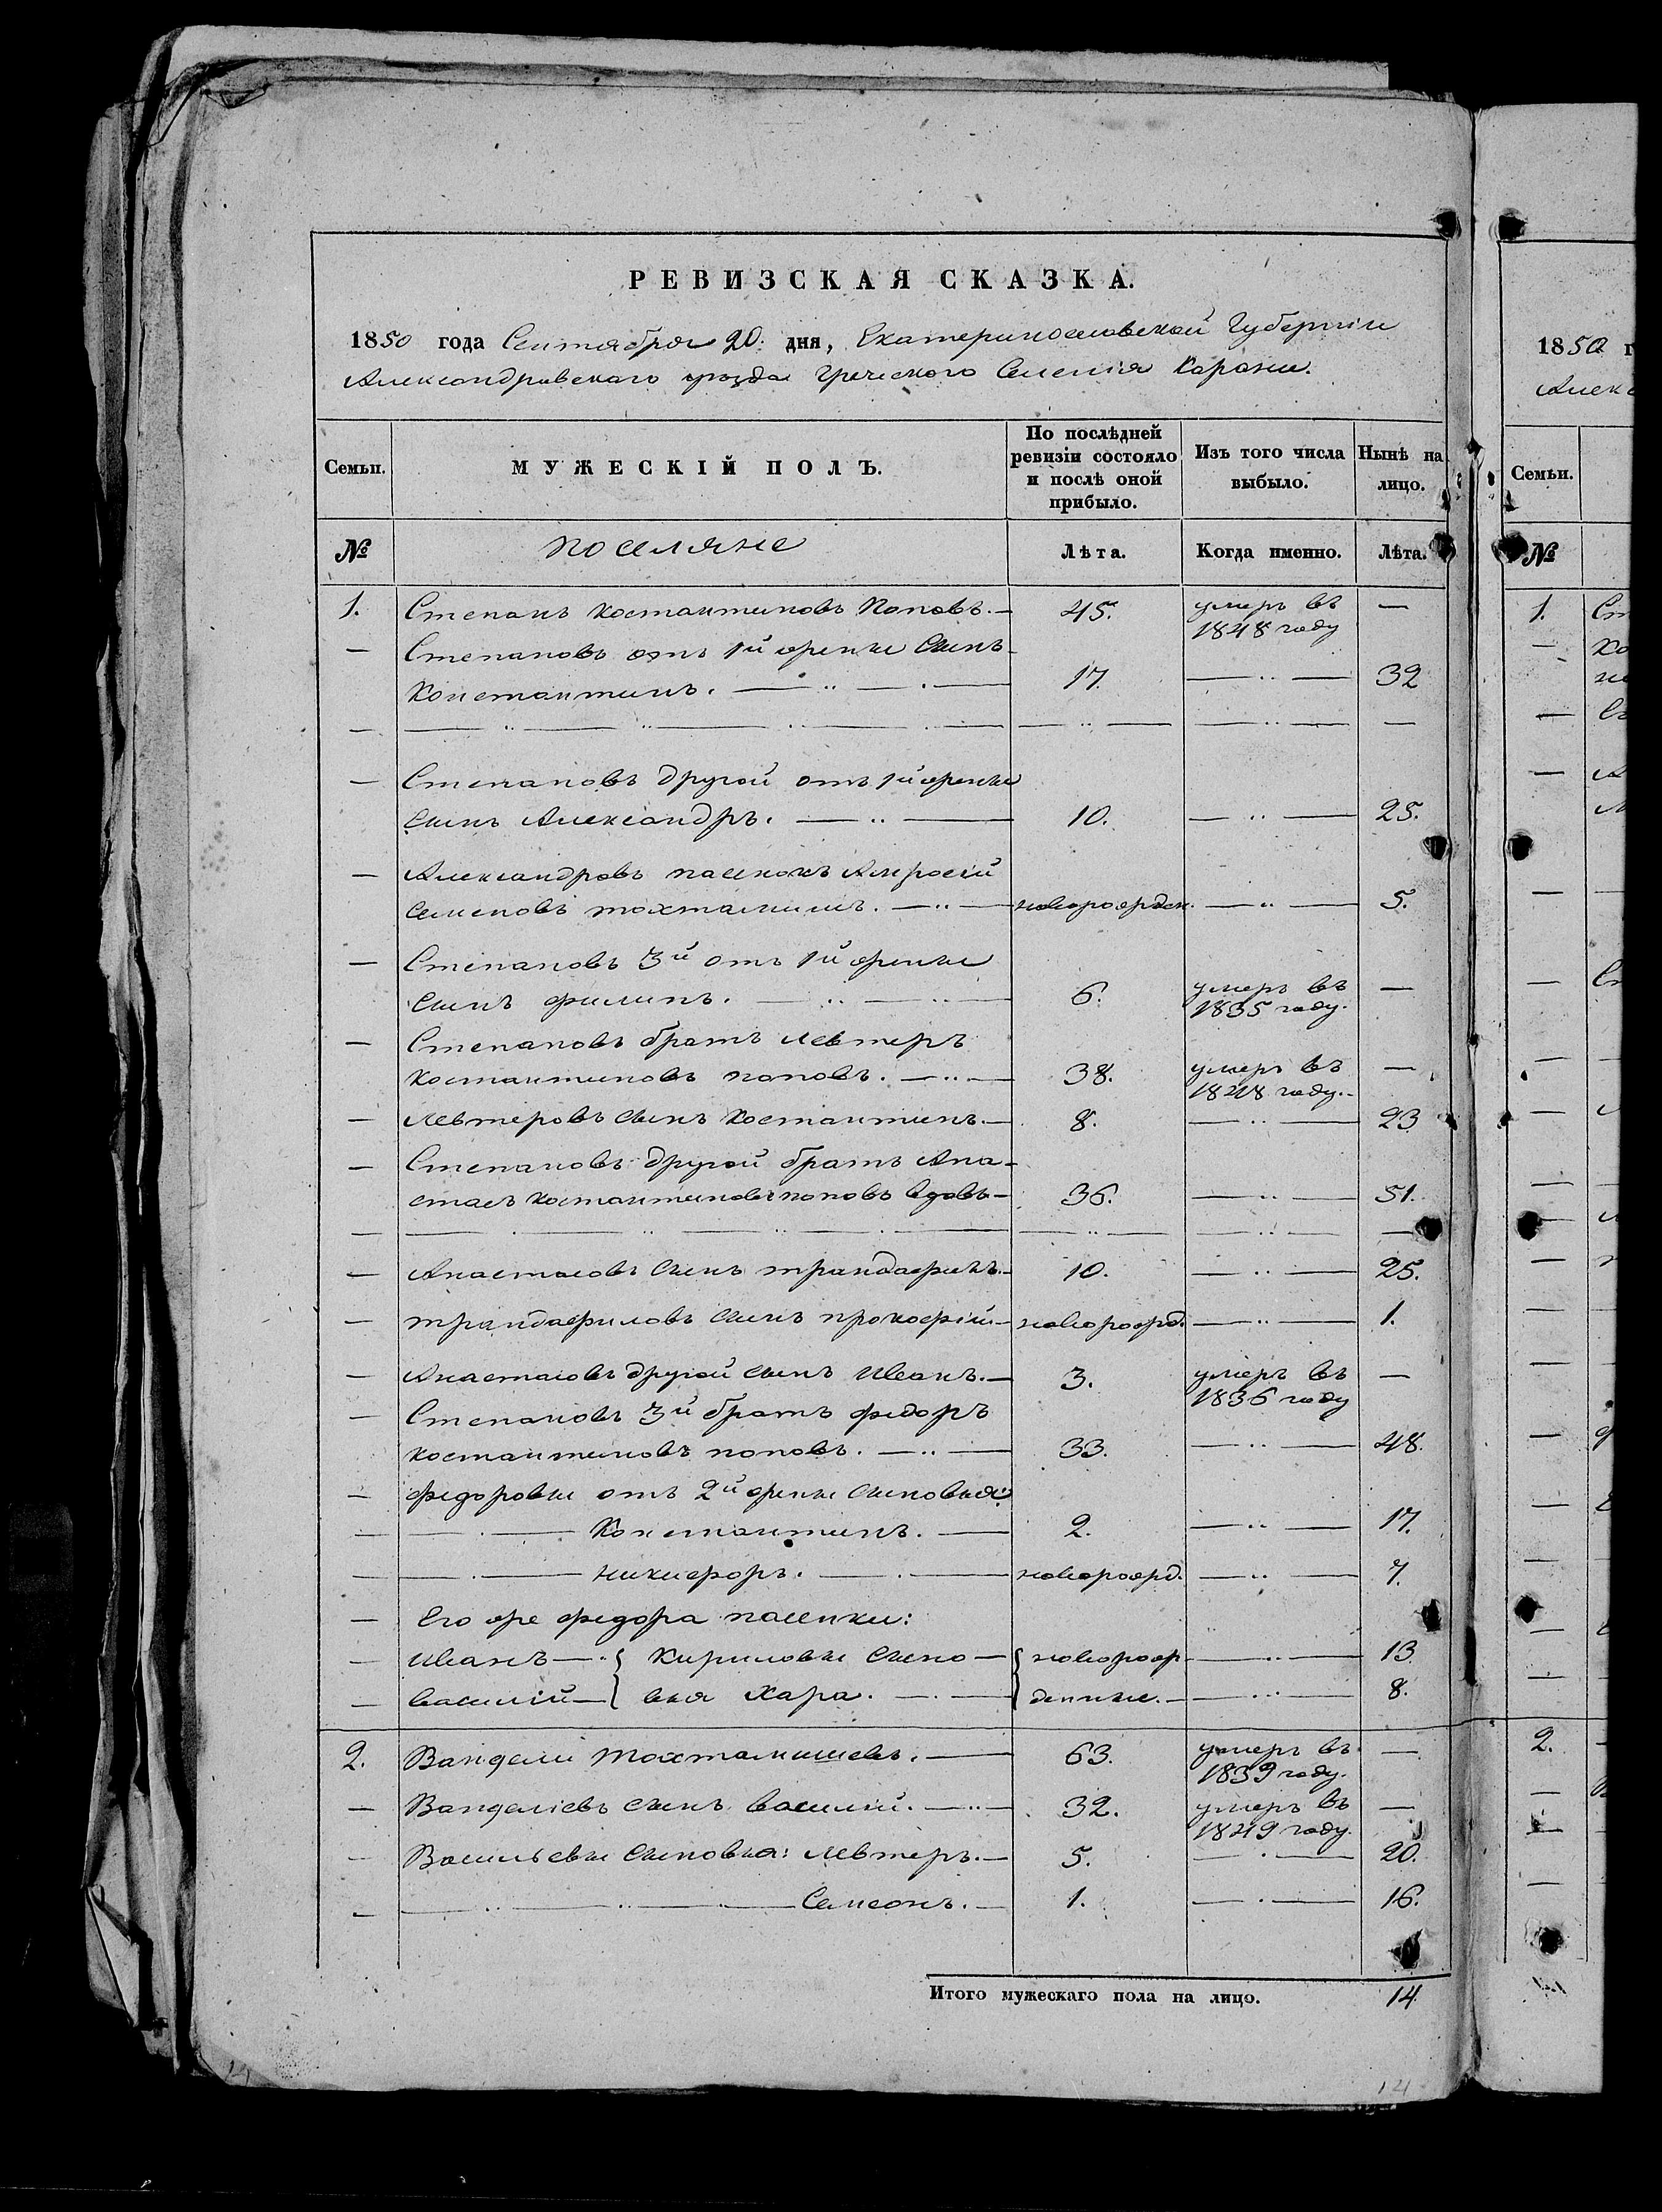 РЕВИЗСКАЯ СКАЗКА.
1850 года Сентября 20. дня, Екатеринославской Губернiи
Александровскаго уѣзда Греческого Селенiя Карани.
Семьи. МУЖЕСКIЙ ПОЛЪ. По послѣдней ревизiи состояло и послѣ оной прибыло. Изъ того числа выбыло. Нынѣ на лицо.
№ поселяне Лѣта. Когда именно. Лѣта.
1. Степанъ Костантиновъ Поповъ.— 45. умеръ въ 1848 году —
— Степановъ отъ 1й жены Сынъ
Константинъ. 17. — 32
— Степановъ другой отъ 1й жены
сынъ Александръ. 10. — 25.
— Александровъ пасенокъ Амросiй
Семеновъ тохтамишъ. новорожден. — 5.
— Степановъ 3й отъ 1й жены
сынъ филипъ. 6. умеръ въ 1835 году. —
— Степановъ братъ Левтеръ
Костантиновъ поповъ. 38. умеръ въ 1848 году. —
— Левтеровъ сынъ Костантинъ. 8. — 23
— Степановъ другой братъ Ана-
стасъ Костантиновъ поповъ вдовъ 36. — 51.
— Анастасовъ Сынъ трандафилъ. 10. — 25.
— трандафиловъ Сынъ прокофiй новорожд. — 1.
— Анастасовъ другой сынъ Иванъ. 3. умеръ въ 1836 году —
— Степановъ 3й братъ федоръ
Костантиновъ поповъ. 33. — 48.
— федоровы отъ 2й жены Сыновья:
— Константинъ. 2. — 17.
— никифоръ. новорожд. — 7.
— Его же федора пасенки:
— Иванъ { Кириловы Сыно- { новорож- — 13
— василiй { вья Хара. { денные. — 8.
2. Вандели Тохтамишевъ. 63. умеръ въ 1839 году. —
— Ванделiевъ сынъ василiй. 32. умеръ въ 1849 году. —
— Васильевы Сыновья: Левтеръ. 5. — 20.
— Семеонъ. 1. — 16.
Итого мужескаго пола на лицо. 14
1850 г
Алекс
Семьи.
№
1.
2.
14